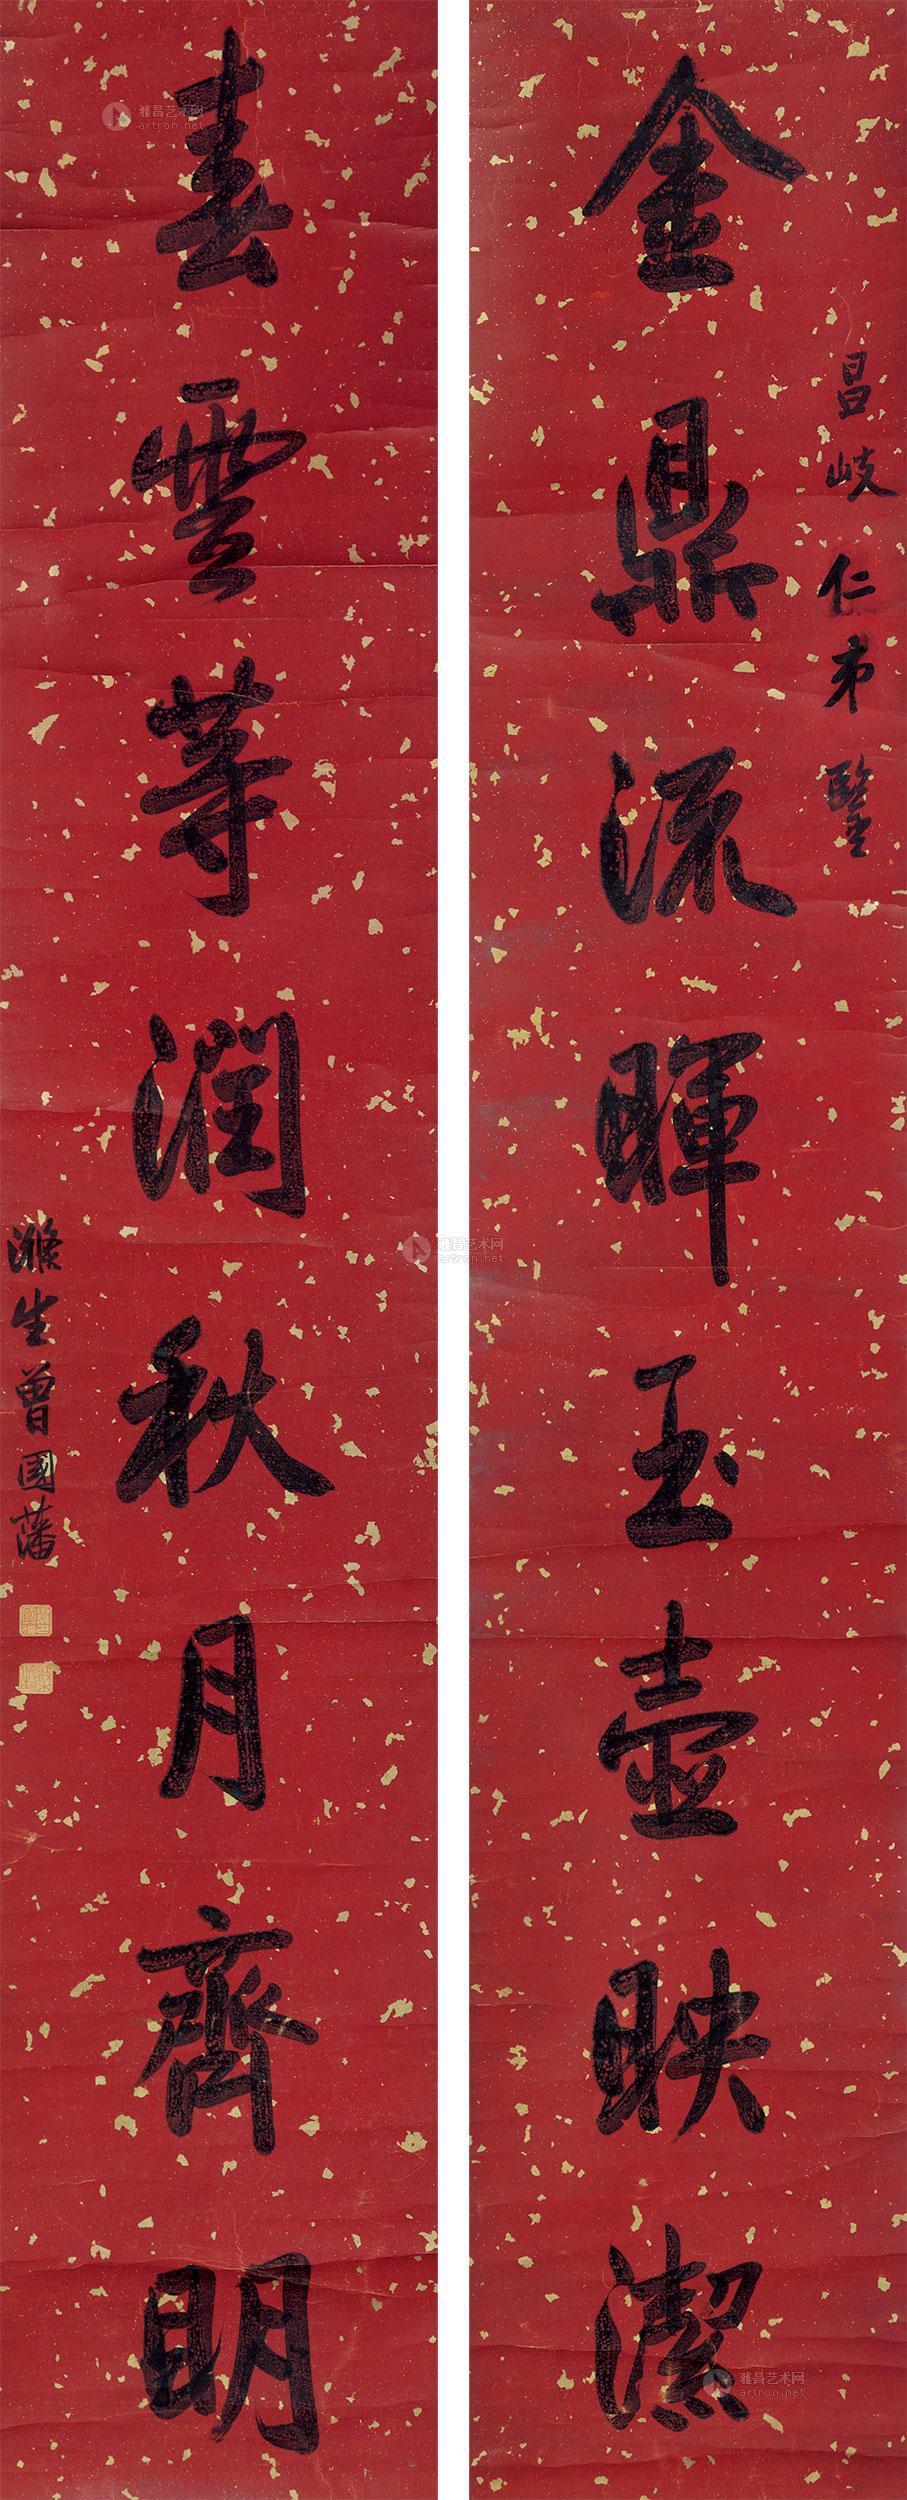 昌岐仁弟鑒
金鼎流暉玉壺映潔
春雲等潤秋月齊明
滌生曾國藩
雅昌艺术网
artron.net
雅昌艺术网
artron.net
雅昌艺术网
artron.net